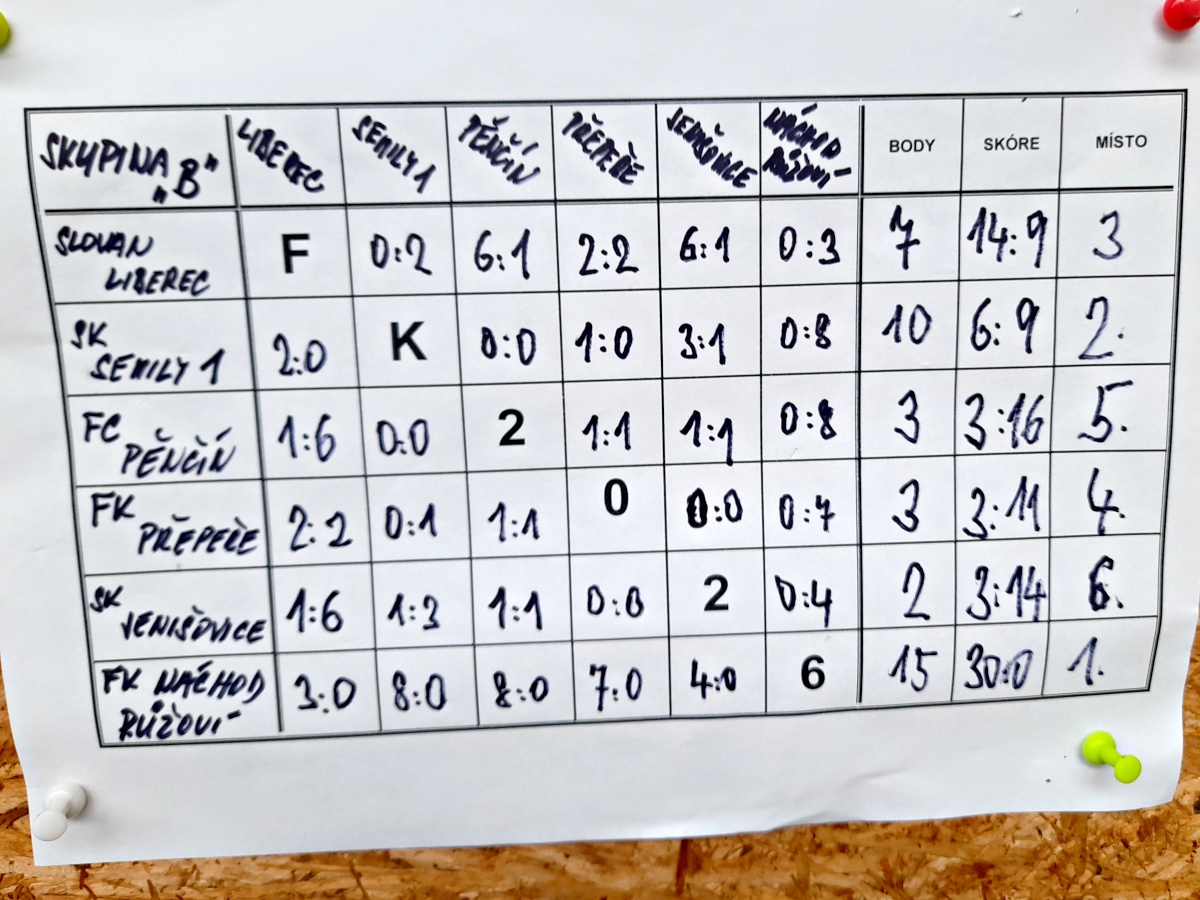 SKUPINA „B" LIBEREC SEMILY 1 PĚNČÍN PŘEPEŘE JENIŠOVICE NÁCHOD RŮŽOVÍ BODY SKÓRE MÍSTO
SLOVAN LIBEREC F 0:2 6:1 2:2 6:1 0:3 7 14:9 3
SK SEMILY 1 2:0 K 0:0 1:0 3:1 0:8 10 6:9 2.
FC PĚNČÍN 1:6 0:0 2 1:1 1:1 0:8 3 3:16 5.
FK PŘEPEŘE 2:2 0:1 1:1 0 0:0 0:7 3 3:11 4.
SK JENIŠOVICE 1:6 1:3 1:1 0:0 2 0:4 2 3:14 6.
FK NÁCHOD RŮŽOVÍ 3:0 8:0 8:0 7:0 4:0 6 15 30:0 1.